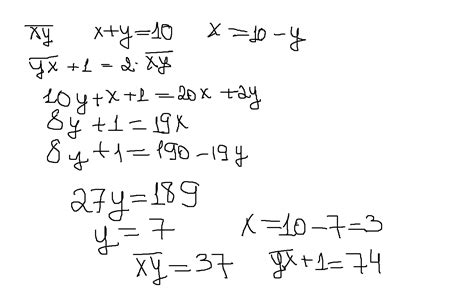 x̅y̅ x+y=10 x=10-y
y̅x̅+1=2·x̅y̅
10y+x+1=20x+2y
8y+1=19x
8y+1=190-19y
27y=189
y=7 x=10-7=3
x̅y̅=37 y̅x̅+1=74